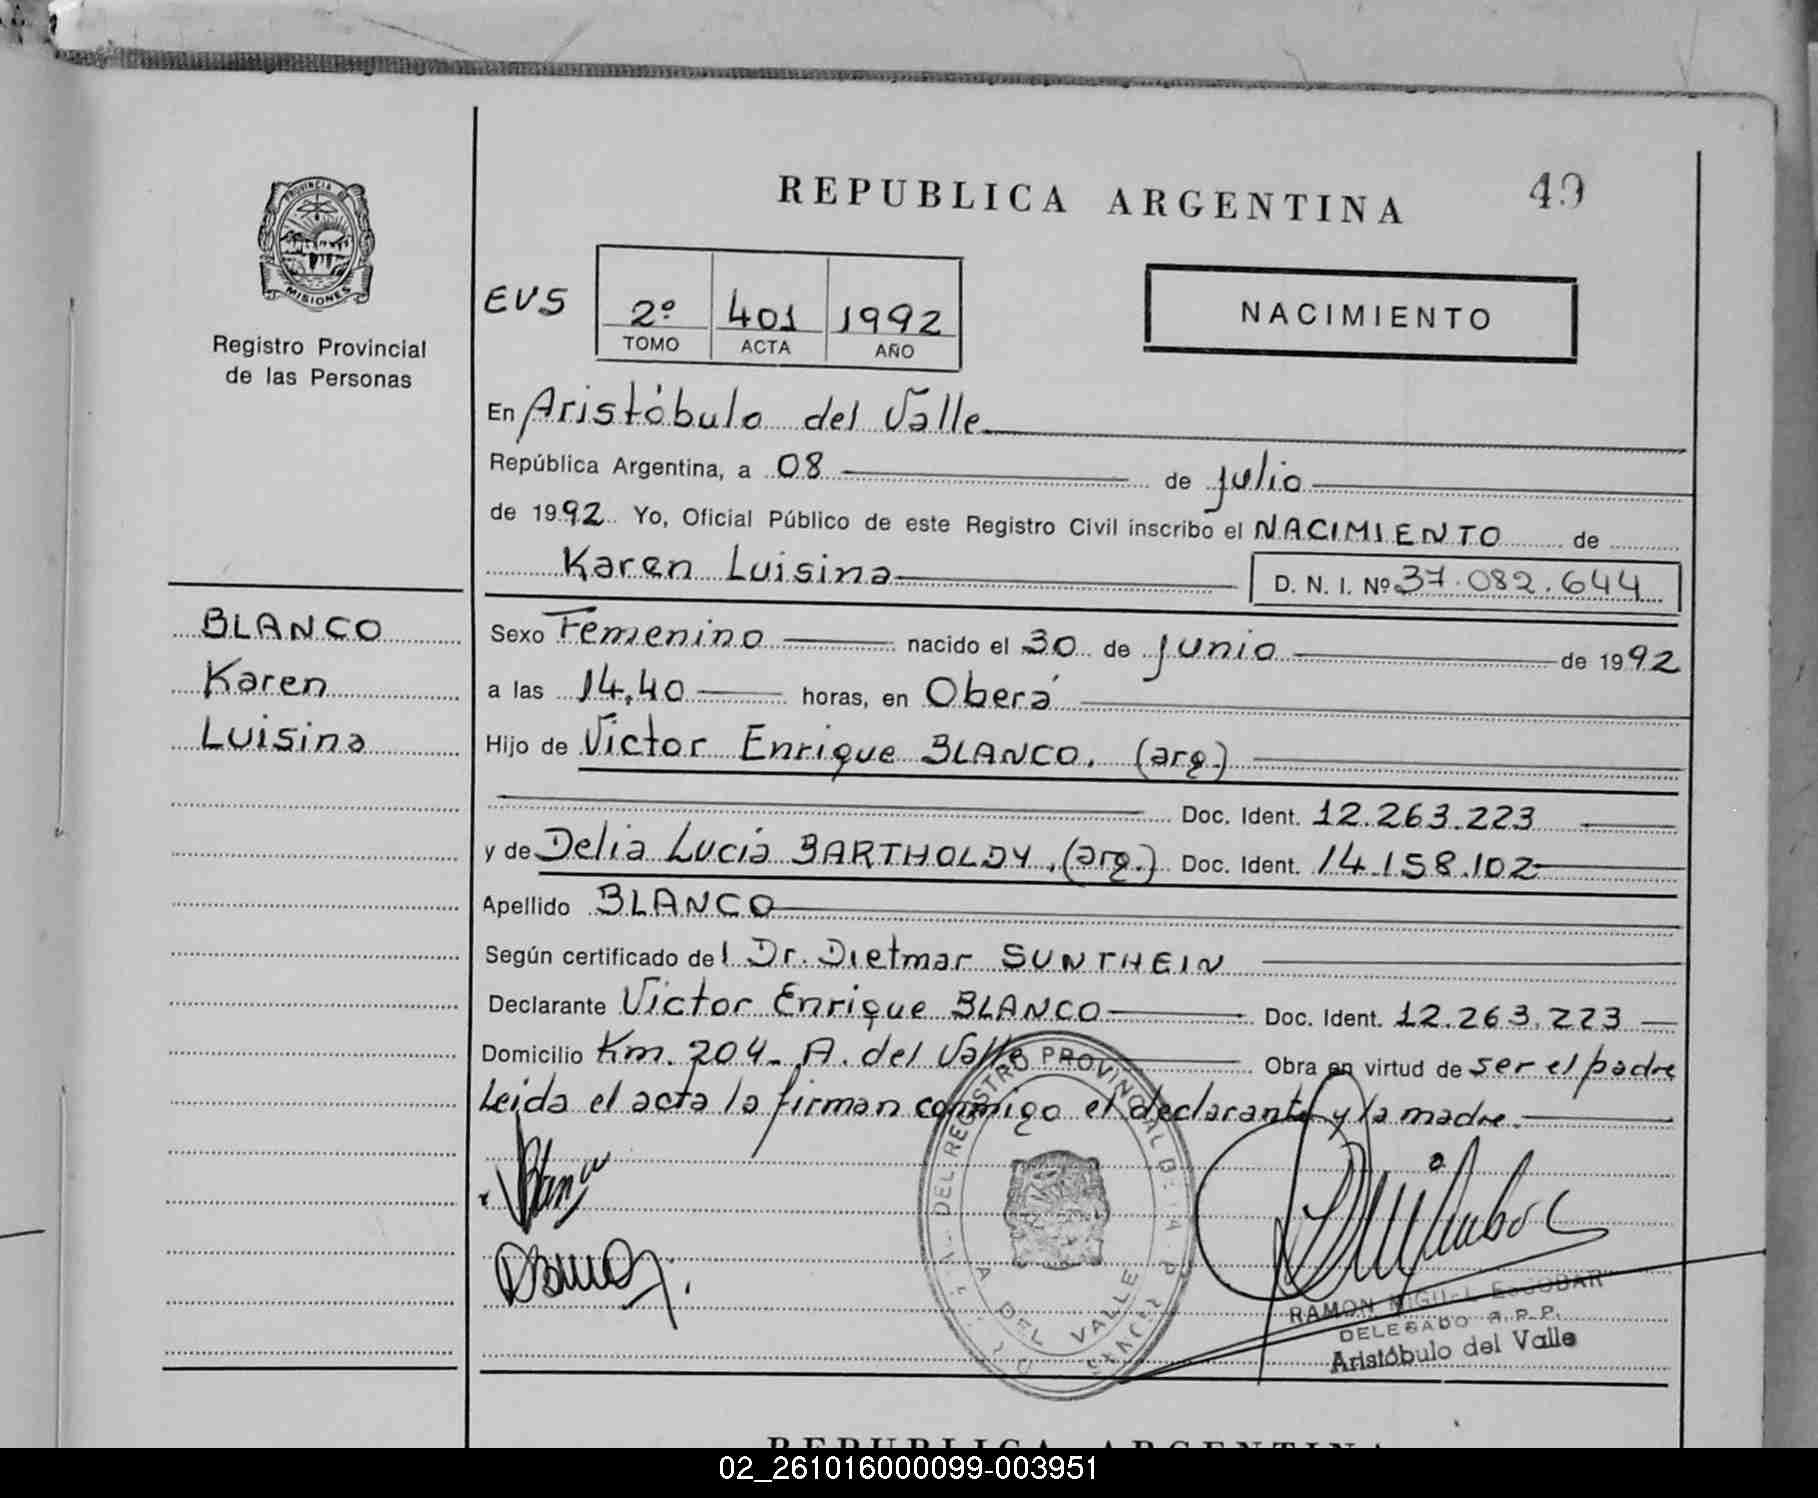 REPUBLICA ARGENTINA
49
PROVINCIA DE
MISIONES
Registro Provincial
de las Personas
EVS
2º 401 1992
TOMO ACTA AÑO
NACIMIENTO
En Aristóbulo del Valle
República Argentina, a 08 de julio
de 1992 Yo, Oficial Público de este Registro Civil inscribo el NACIMIENTO de
Karen Luisina D. N. I. Nº 37.082.644
BLANCO
Karen
Luisina
Sexo Femenino nacido el 30 de junio de 1992
a las 14,40 horas, en Oberá
Hijo de Victor Enrique BLANCO. (arg.)
Doc. Ident. 12.263.223
y de Delia Lucia BARTHOLDY. (arg.) Doc. Ident. 14.158.102
Apellido BLANCO
Según certificado del Dr. Dietmar SUNTHEIN
Declarante Victor Enrique BLANCO Doc. Ident. 12.263.223
Domicilio Km. 204- A. del Valle Obra en virtud de ser el padre
Leida el acta la firman conmigo el declarante y la madre.
DEL REGISTRO PROVINCIAL DE
DEL VALLE
RAMON MIGUEL ESCOBAR
DELEGADO R.P.P.
Aristóbulo del Valle
REPUBLICA ARGENTINA
02_261016000099-003951